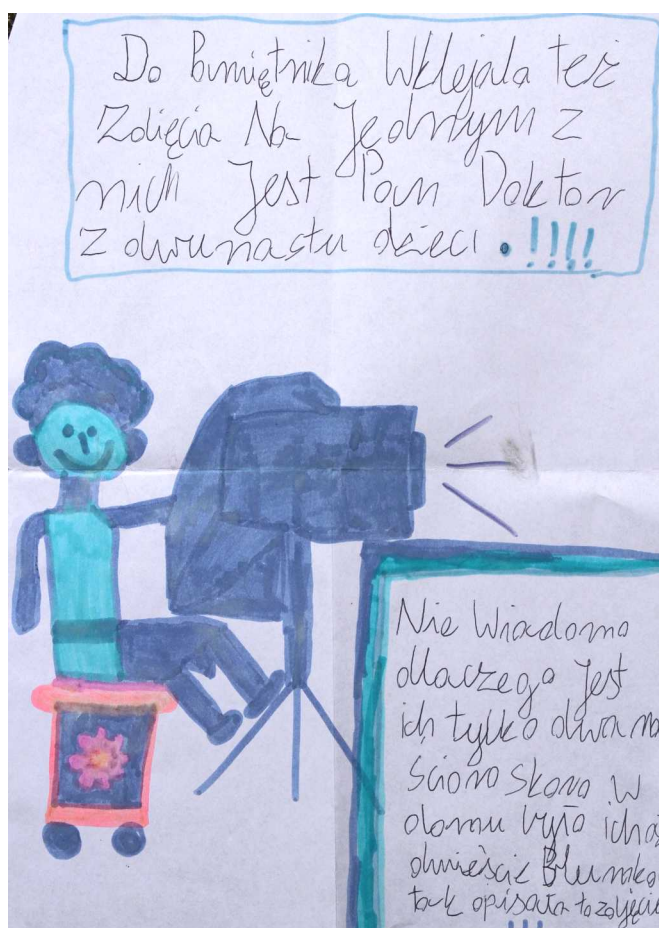 Do Pamiętnika Wklejała też
Zdięcia Na Jednym z
nich Jest Pan Doktor
z dwunastu dzieci . !!!!
Nie Wiadomo
dlaczego Jest
ich tylko dwana
ścioro skoro W
domu było ich
dwieście Blumka
tak opisała to zdjęcie
!!!